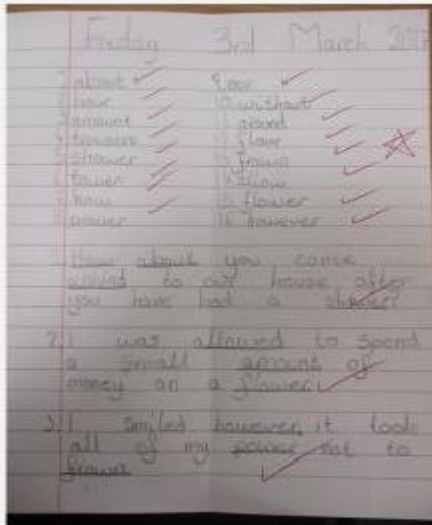 Friday 3rd March
1 about
2 hour
3 amount
4 towers
5 shower
6 tower
7 how
8 power
9 our
10 without
11 around
12 flour
13 frown
14 allow
15 flower
16 however
How about you come
around to our house after
you have had a shower?
2. I was allowed to spend
a small amount of
money on a flower.
3. I smiled however, it took
all of my power not to